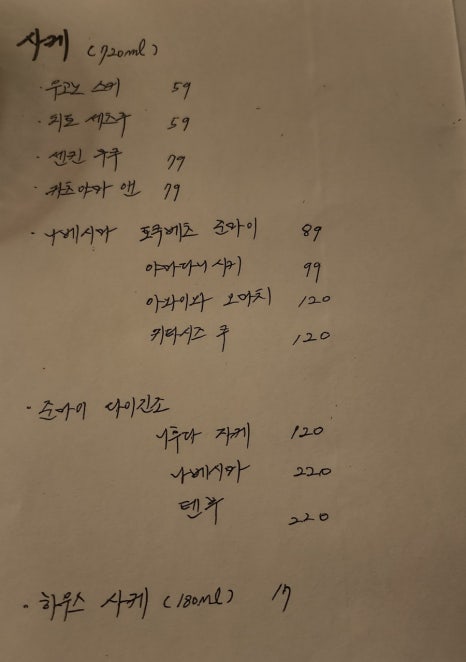 사케 (720ml)
· 우고노 스키 59
· 리토 세즈쿠 59
· 센킨 쿠쿠 79
· 카츠야마 앤 79
· 나베시마 토쿠베츠 준마이 89
야마다니시키 99
아카이와 오마치 120
키타시즈쿠 120
· 준마이 다이긴조
니후다 자케 120
나베시마 220
텐 220
· 하우스 사케 (180ml) 17